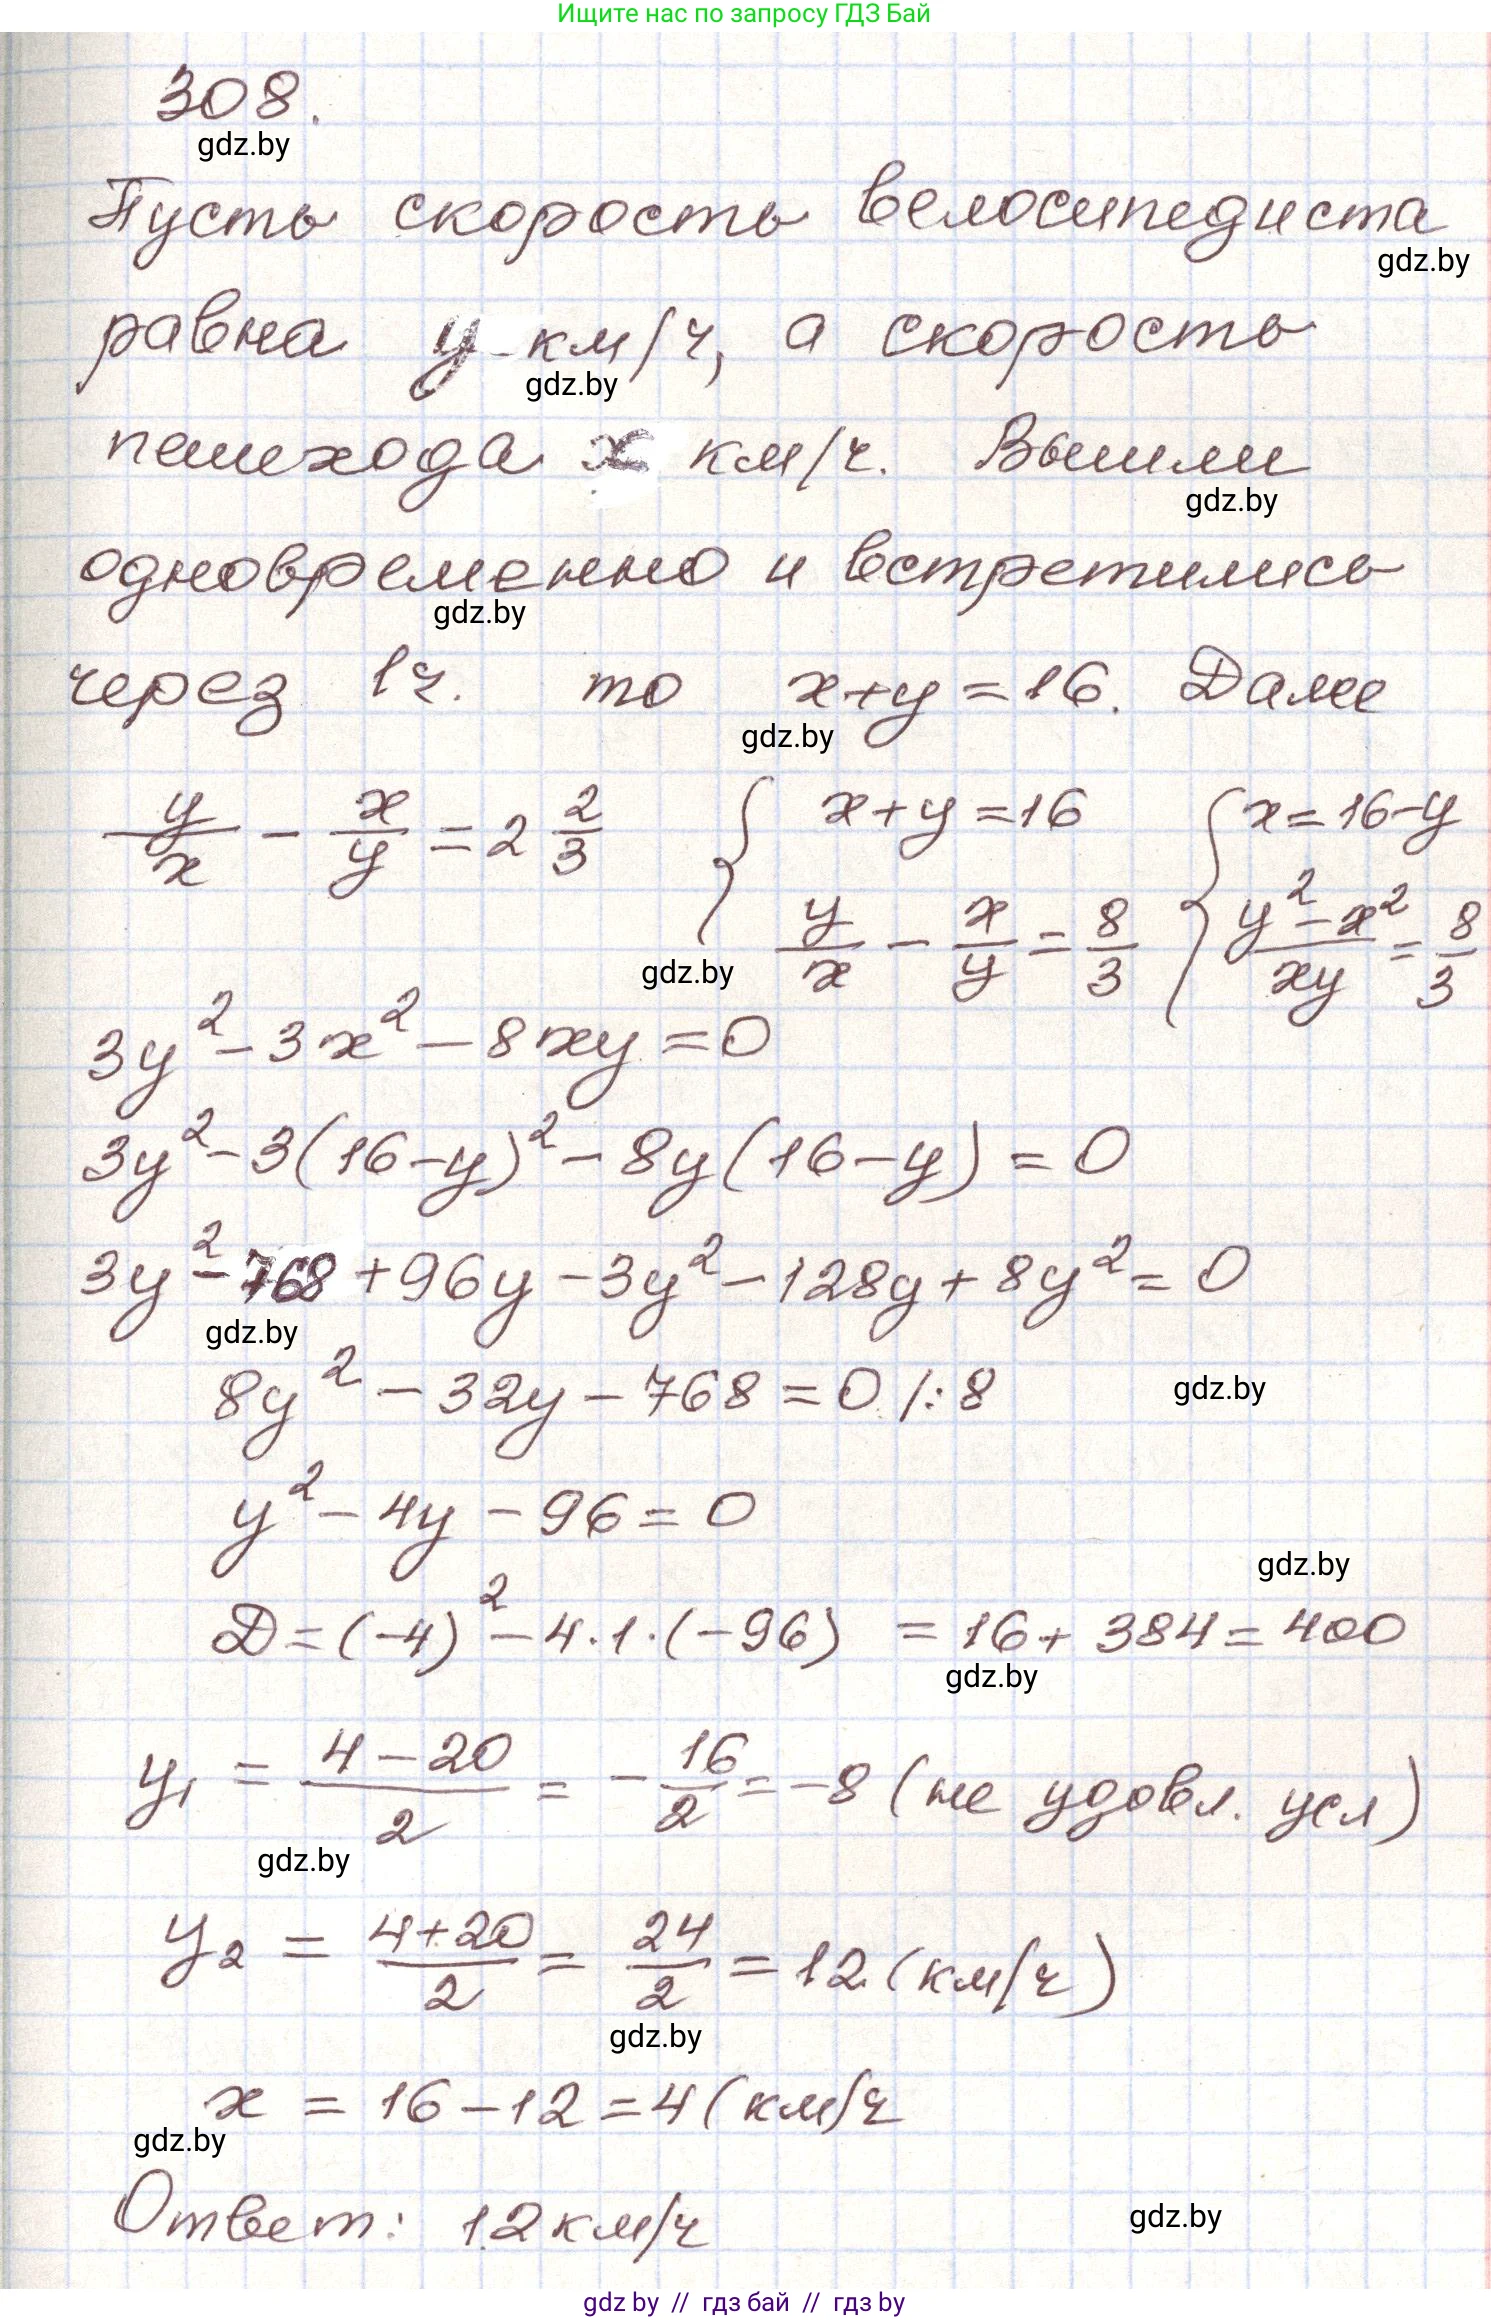 Ищите нас по запросу ГДЗ Бай
308.
gdz.by
Пусть скорость велосипедиста
gdz.by
равна y км/ч, а скорость
gdz.by
пешехода x км/ч. Вышли
gdz.by
одновременно и встретились
gdz.by
через 1ч. то x+y=16. Далее
gdz.by
y/x - x/y = 2 2/3 { x+y=16 { x=16-y
y/x - x/y = 8/3 (y²-x²)/xy = 8/3
gdz.by
3y² - 3x² - 8xy = 0
3y² - 3(16-y)² - 8y(16-y) = 0
3y² - 768 + 96y - 3y² - 128y + 8y² = 0
gdz.by
8y² - 32y - 768 = 0 /:8
gdz.by
y² - 4y - 96 = 0
gdz.by
D = (-4)² - 4·1·(-96) = 16 + 384 = 400
gdz.by
y₁ = (4-20)/2 = -16/2 = -8 (не удовл. усл)
gdz.by
y₂ = (4+20)/2 = 24/2 = 12 (км/ч)
gdz.by
x = 16 - 12 = 4 (км/ч
gdz.by
Ответ: 12 км/ч
gdz.by
gdz.by // гдз бай // гдз by